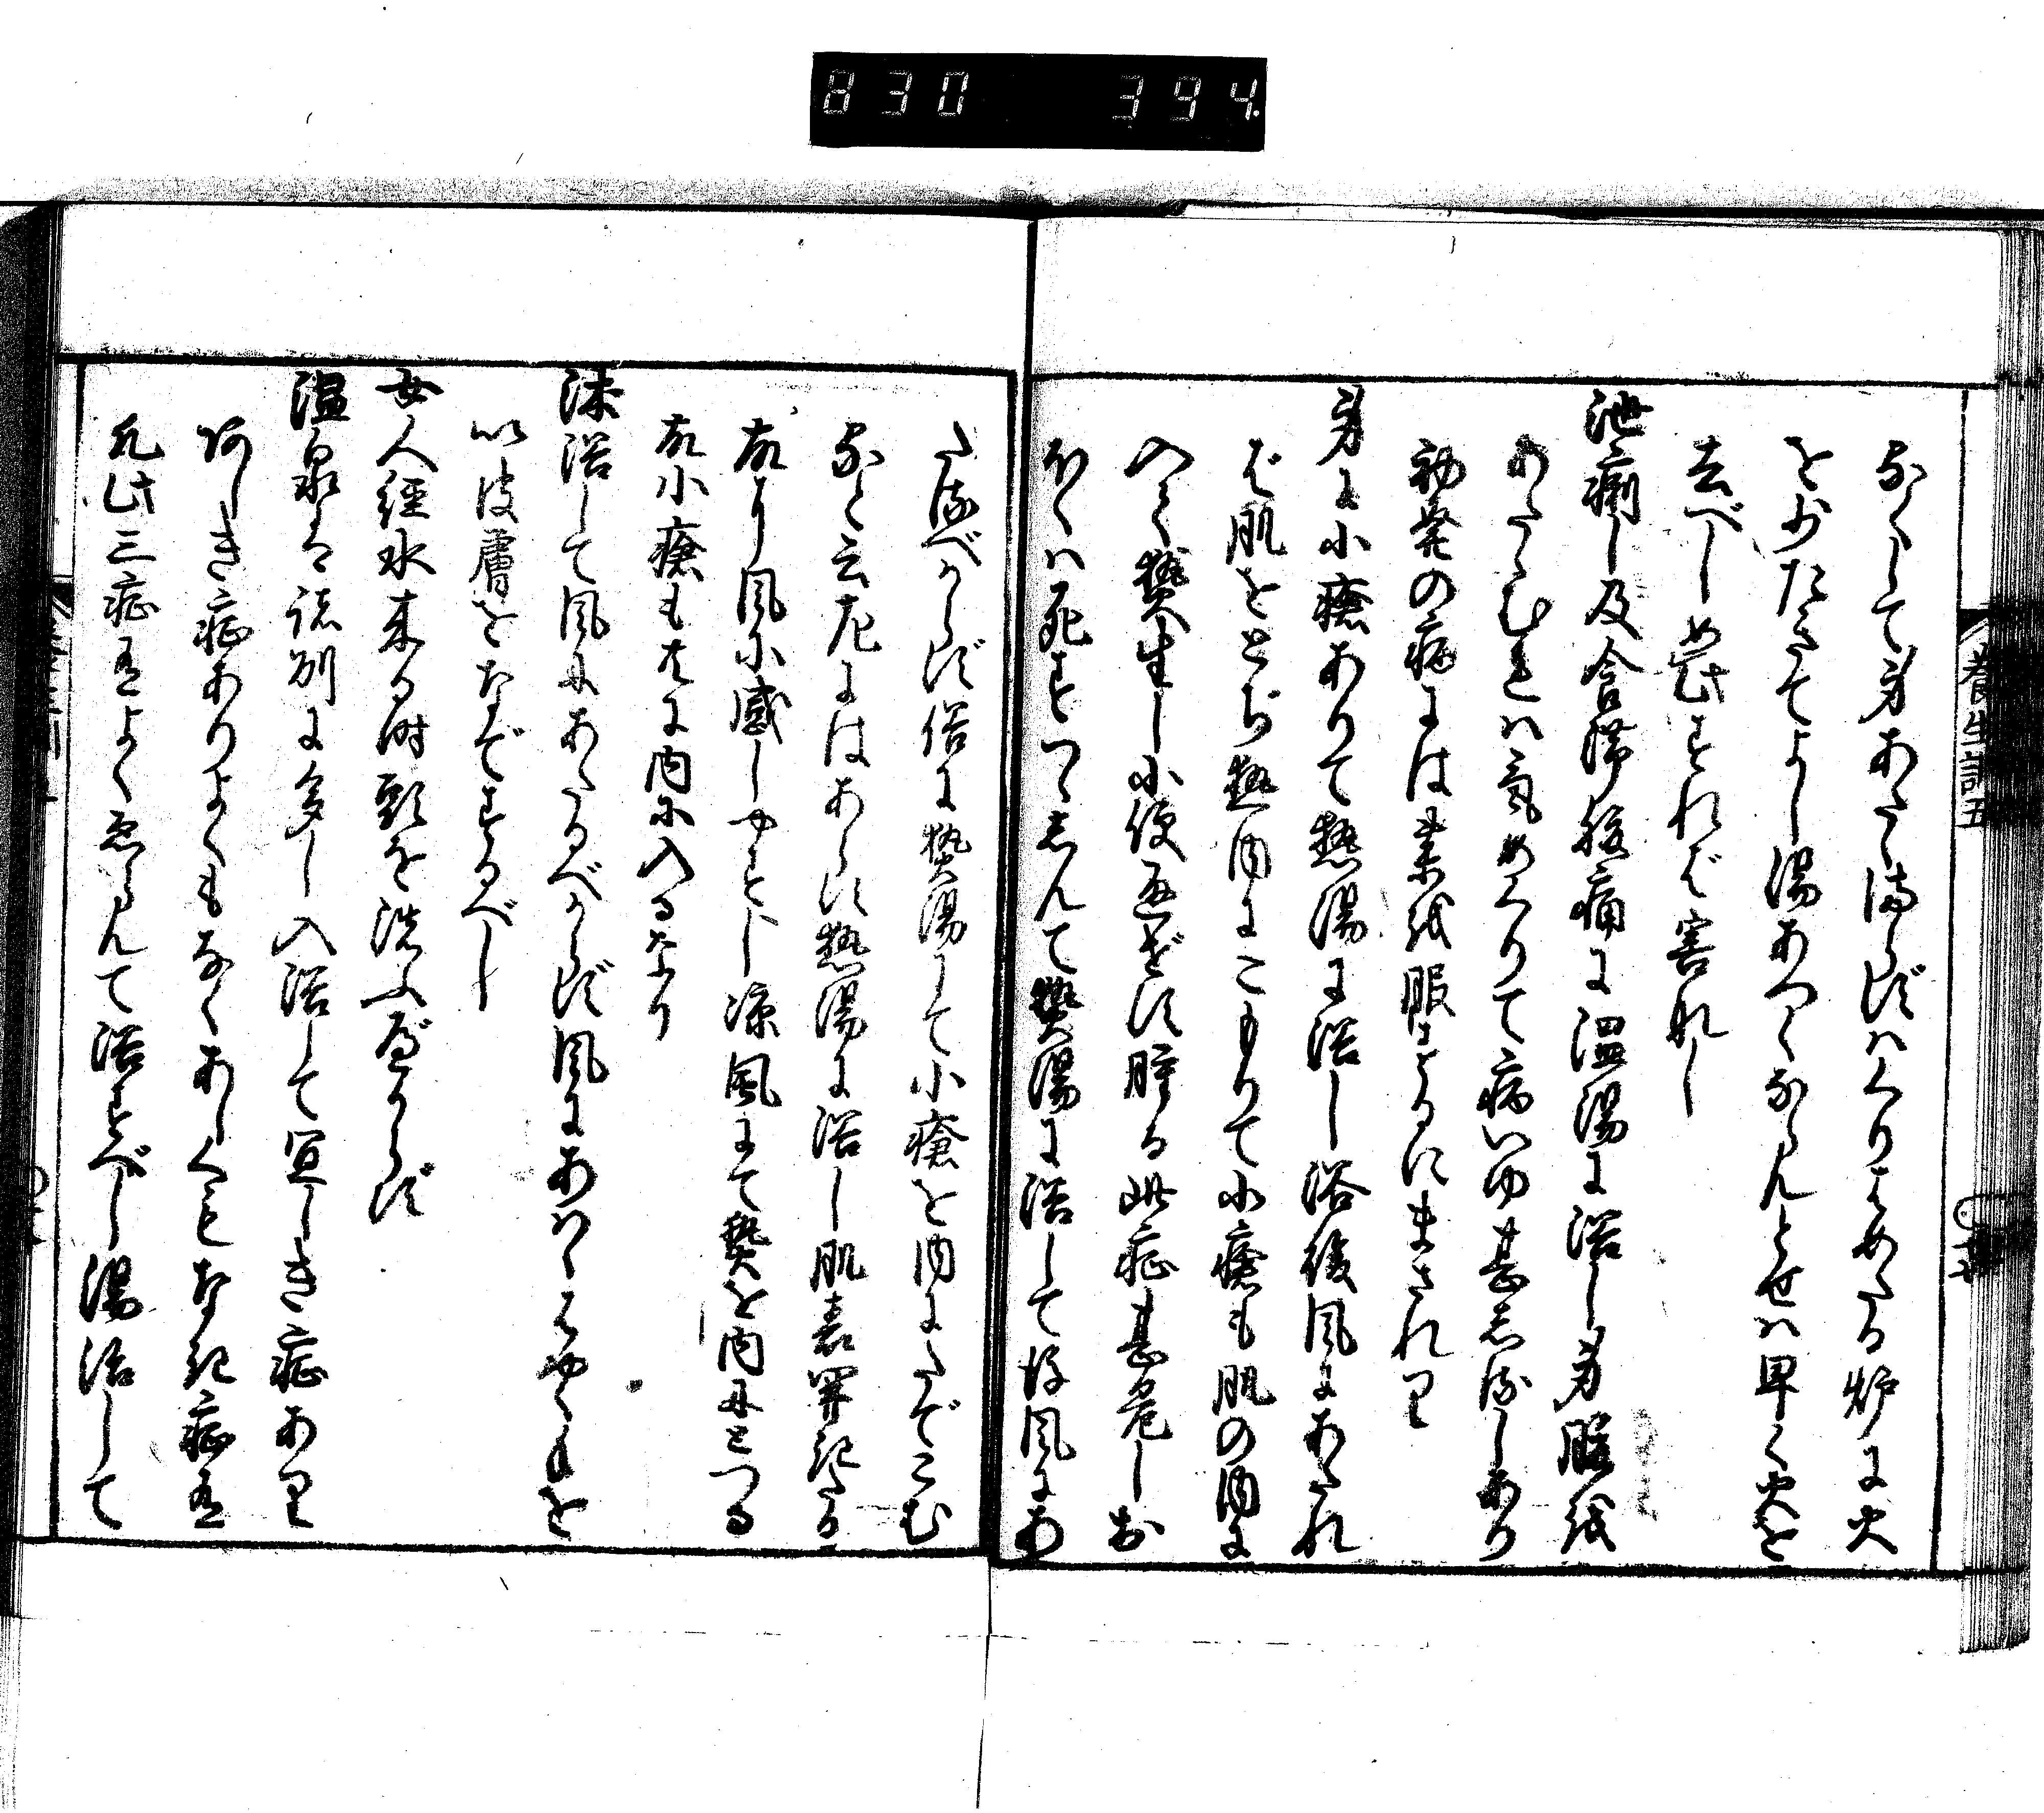 830 394.
養生訓五
なくして身あたゝまらずはくりはめたる炉に火
を少たきてよし湯あつくならんとせは早く火を
去べしめ此すれば害なし
泄痢し及食滞腹痛に温湯に浴し身腹を
あたゝむれは気めくりて病いゆ甚しるしあり
初発の病には薬を服するにまされり
身に小瘡ありて熱湯に浴し浴後風にあたれ
ば肌をとぢ熱内にこもりて小瘡も肌の内に
入て熱生し小便通せず腫る此症甚危しお
ほくは死すつゝしんて熱湯に浴して後風にあ
たるべからず俗に熱湯にて小瘡を内にたでこむ
ると云左にはあらす熱湯に浴し肌表開きたる
故に風に感しやすし涼風にて熱を内にとつる
故小瘡も共に内に入るなり
沐浴して風にあたるべからず風にあはゝはやく手を
以皮膚をなでするべし
女人経水来る時頭を洗ふべからず
温泉は諸州に多し入浴して宜しき症あり
あしき症ありよくもなくあしくもなき症有
凡此三症有よくゑらんて浴すべし湯治して